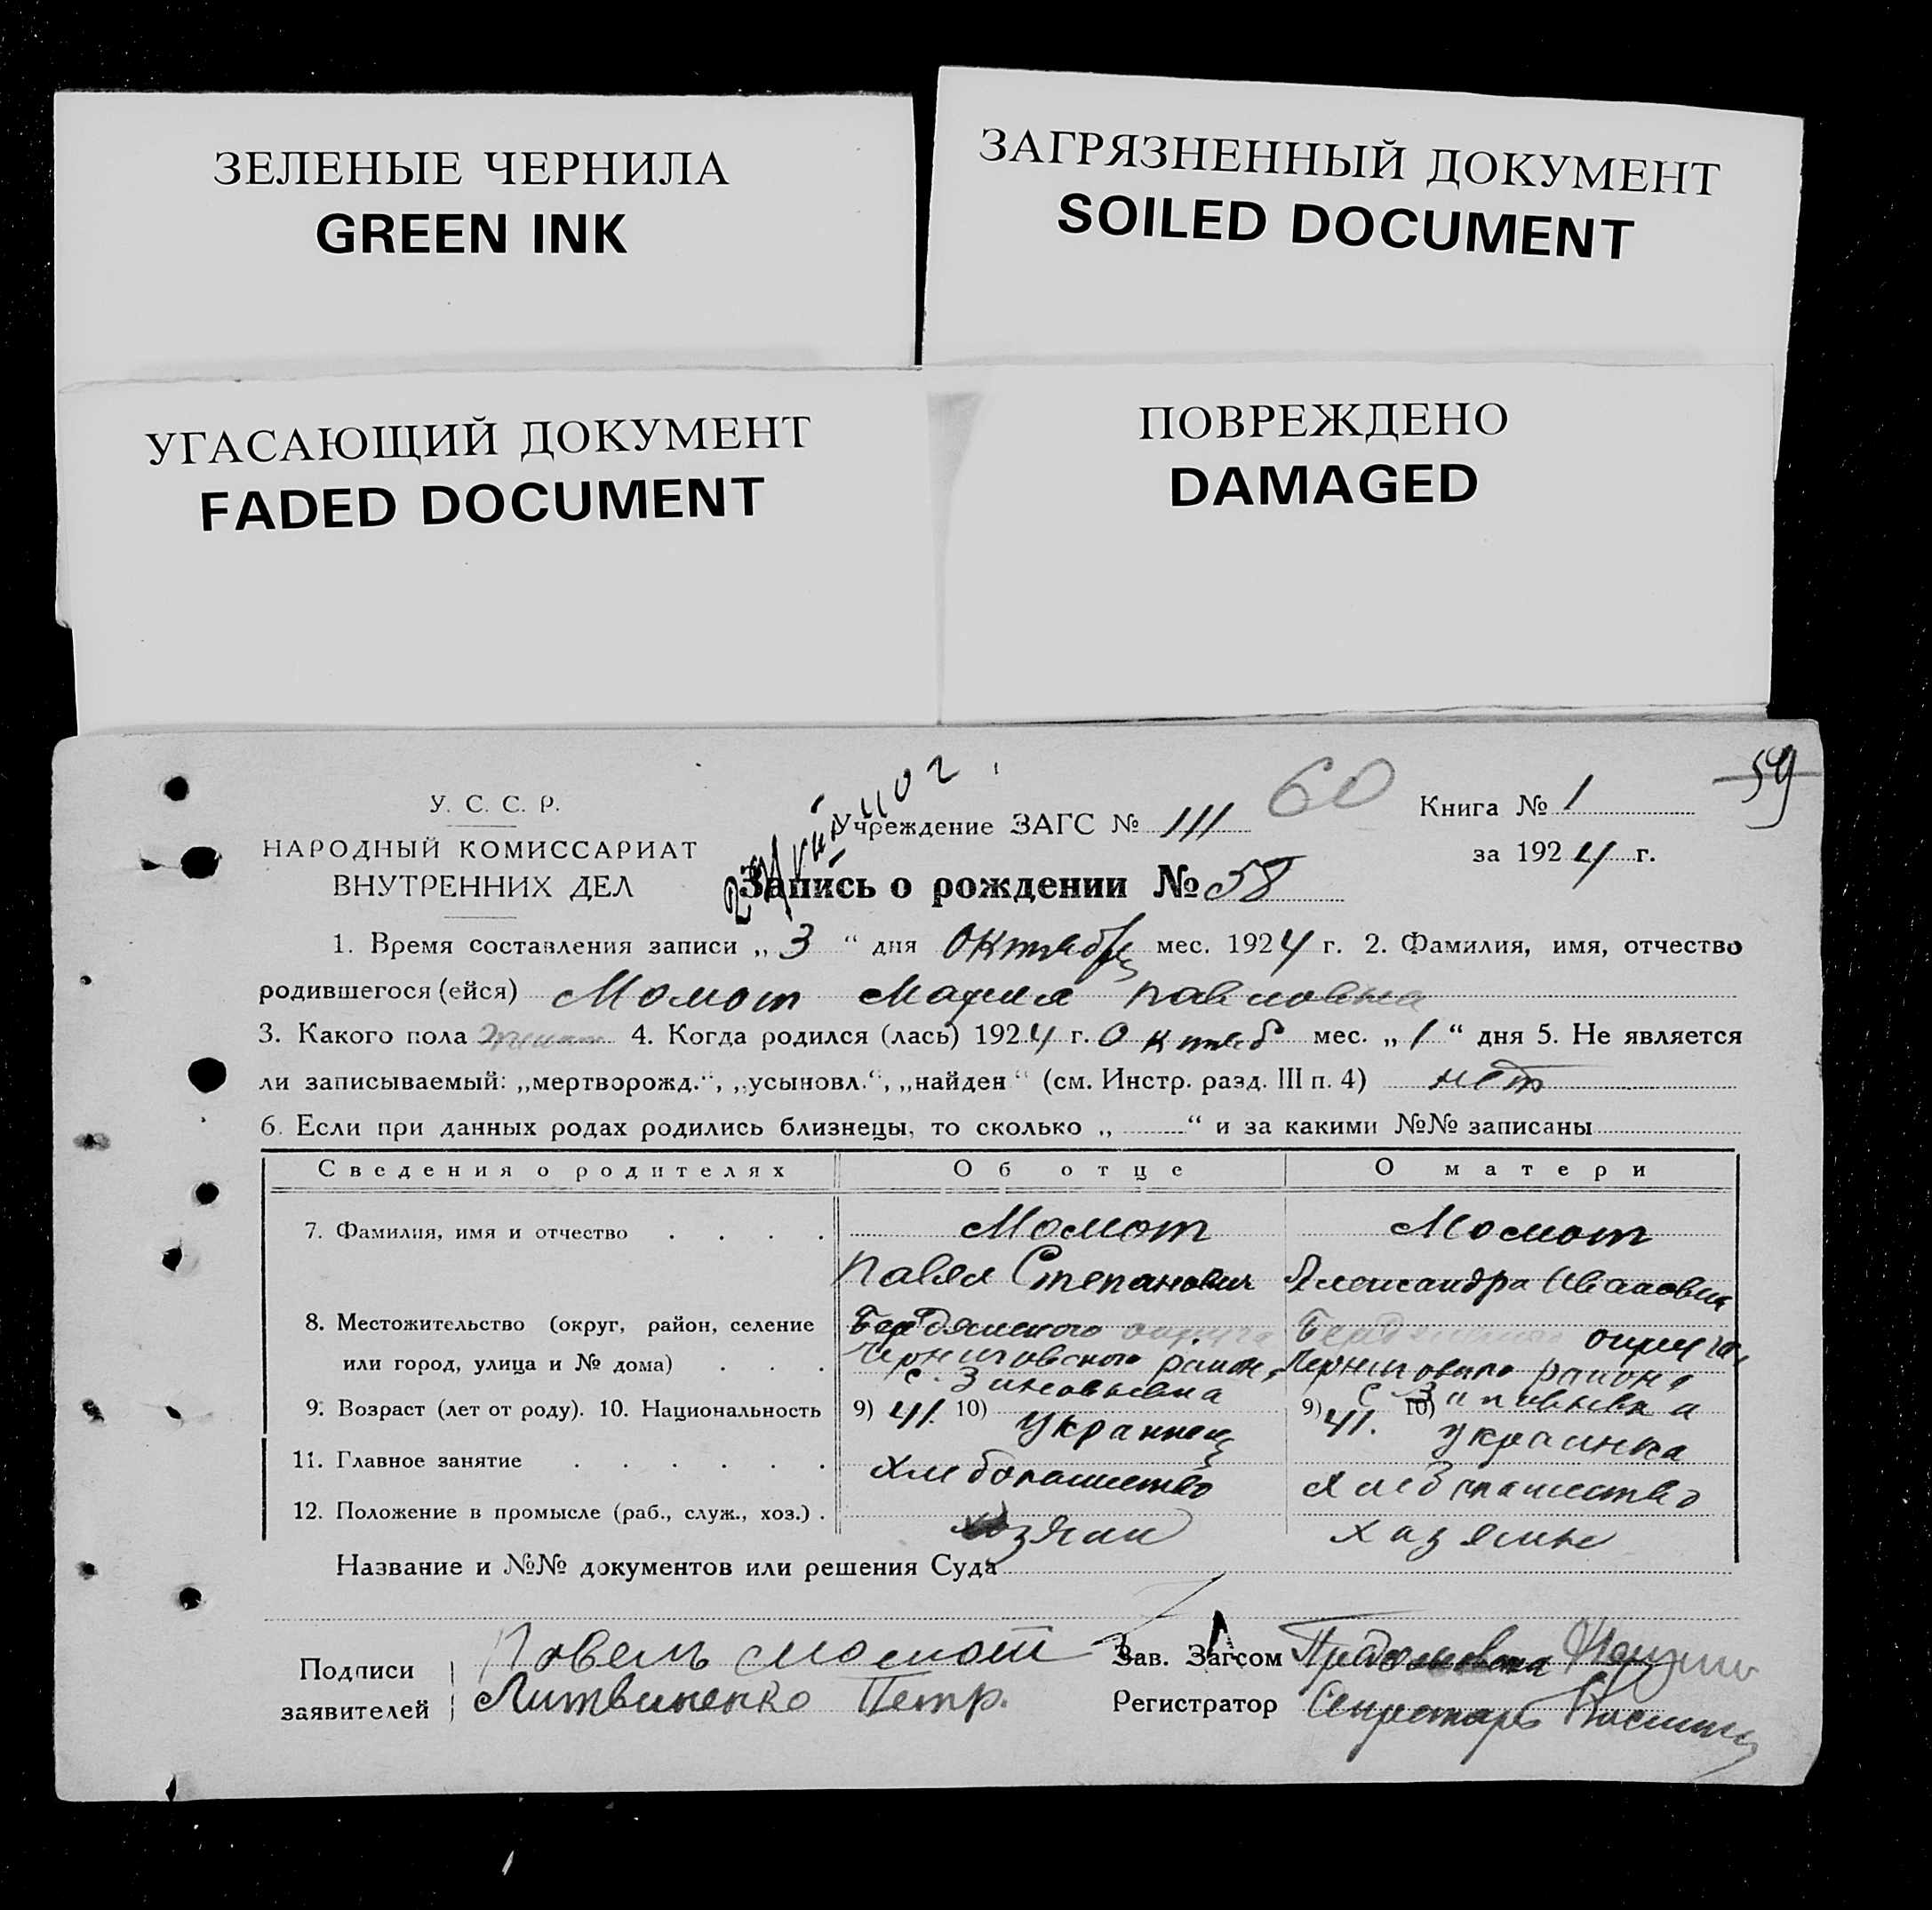 ЗЕЛЕНЫЕ ЧЕРНИЛА
GREEN INK
ЗАГРЯЗНЕННЫЙ ДОКУМЕНТ
SOILED DOCUMENT
УГАСАЮЩИЙ ДОКУМЕНТ
FADED DOCUMENT
ПОВРЕЖДЕНО
DAMAGED
59
60
У. С. С. Р.
НАРОДНЫЙ КОМИССАРИАТ
ВНУТРЕННИХ ДЕЛ
Учреждение ЗАГС № 111
Книга № 1
за 1924 г.
Запись о рождении № 58
1. Время составления записи „3“ дня Октября мес. 1924 г. 2. Фамилия, имя, отчество
родившегося (ейся) Момот Мария Павловна
3. Какого пола 4. Когда родился (лась) 1924 г. Октяб мес. „1“ дня 5. Не является
ли записываемый: „мертворожд.“, „усыновл.“, „найден“ (см. Инстр. разд. III п. 4) нет
6. Если при данных родах родились близнецы, то сколько „ “ и за какими №№ записаны
Сведения о родителях Об отце О матери
7. Фамилия, имя и отчество Момот Момот
Павел Степанович Александра Ивановна
8. Местожительство (округ, район, селение Бердянского округа Бердянского округа
или город, улица и № дома) Черниговского района Черниговского района
с. Зиновьевка с. Зиновьевка
9. Возраст (лет от роду). 10. Национальность 9) 41. 10) Украинец 9) 41. 10) Украинка
11. Главное занятие Хлебопашество Хлебопашество
12. Положение в промысле (раб., служ., хоз.) хозяин хазяинка
Название и №№ документов или решения Суда
Подписи Павель Момот Зав. Загсом
заявителей Литвиненко Петр. Регистратор Секретарь